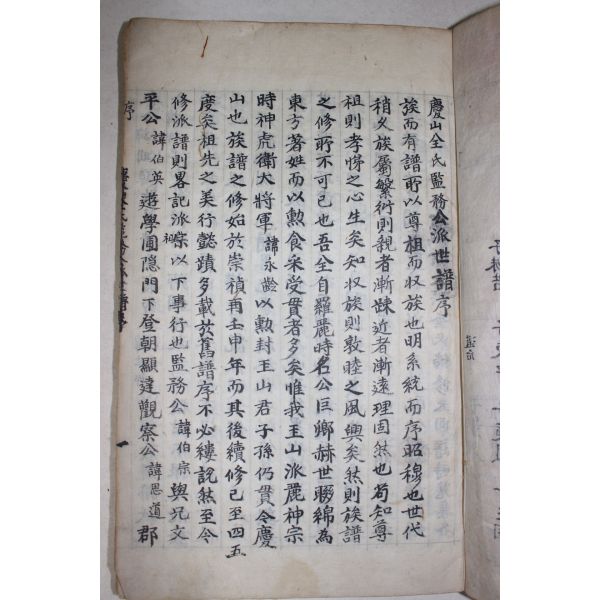 慶山全氏監務公派世譜序
族而有譜所以尊祖而収族也明系統而序昭穆也世代
稍久族屬繁衍則親者漸踈近者漸遠理固然也苟知尊
祖則孝悌之心生矣知収族則敦睦之風興矣然則族譜
之修所不可已也吾全自羅麗時名公巨卿赫世聯綿為
東方著姓而以勲食采受貫者多矣惟我玉山派麗神宗
時神虎衛大將軍諱永齡以勲封玉山君子孫仍貫今慶
山也族譜之修始於崇禎再壬申年而其後續修已至四五
度矣祖先之美行懿蹟多載於舊譜序不必縷說然至今
修派譜則畧記派祖宗以下事行也監務公諱伯宗與兄文
平公諱伯英遊學圃隠門下登朝顯達觀察公諱思道郡
序
一